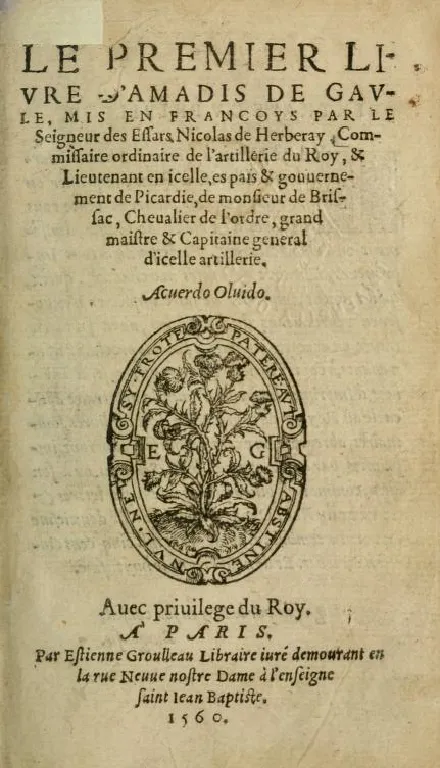 LE PREMIER LI-
VRE D'AMADIS DE GAV-
LE, MIS EN FRANCOYS PAR LE
Seigneur des Eſſars, Nicolas de Herberay, Com-
miſſaire ordinaire de l'artillerie du Roy, &
Lieutenant en icelle, es païs & gouuerne-
ment de Picardie, de monſieur de Briſ-
ſac, Cheualier de l'ordre, grand
maiſtre & Capitaine general
d'icelle artillerie.
Acuerdo Oluido.
NVL NE SY FROTE
PATERE AVT ABSTINE
E G
Auec priuilege du Roy.
A PARIS.
Par Eſtienne Groulleau Libraire iuré demourant en
la rue Neuue noſtre Dame à l'enſeigne
ſaint Iean Baptiſte.
1560.